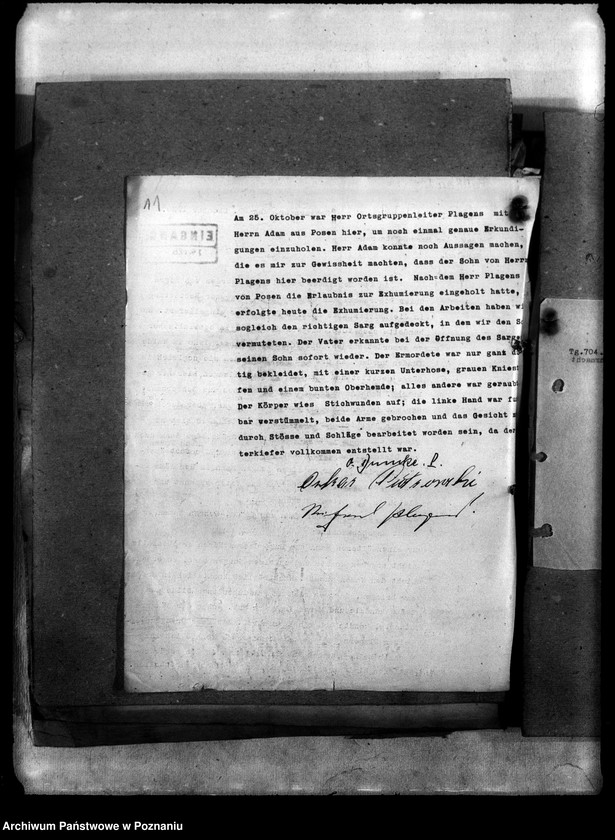 11.
EINGANG
Am 25. Oktober war Herr Ortsgruppenleiter Plagens mit
Herrn Adam aus Posen hier, um noch einmal genaue Erkundi-
gungen einzuholen. Herr Adam konnte noch Aussagen machen,
die es mir zur Gewissheit machten, dass der Sohn von Herrn
Plagens hier beerdigt worden ist. Nachdem Herr Plagens
von Posen die Erlaubnis zur Exhumierung eingeholt hatte,
erfolgte heute die Exhumierung. Bei den Arbeiten haben wi
sogleich den richtigen Sarg aufgedeckt, in dem wir den S
vermuteten. Der Vater erkannte bei der Öffnung des Sarge
seinen Sohn sofort wieder. Der Ermordete war nur ganz d
tig bekleidet, mit einer kurzen Unterhose, grauen Kniest
fen und einem bunten Oberhemde; alles andere war geraub
Der Körper wies Stichwunden auf; die linke Hand war fu
bar verstümmelt, beide Arme gebrochen und das Gesicht
durch Stösse und Schläge bearbeitet worden sein, da de
terkiefer vollkommen entstellt war.
Oskar
Tg.704.